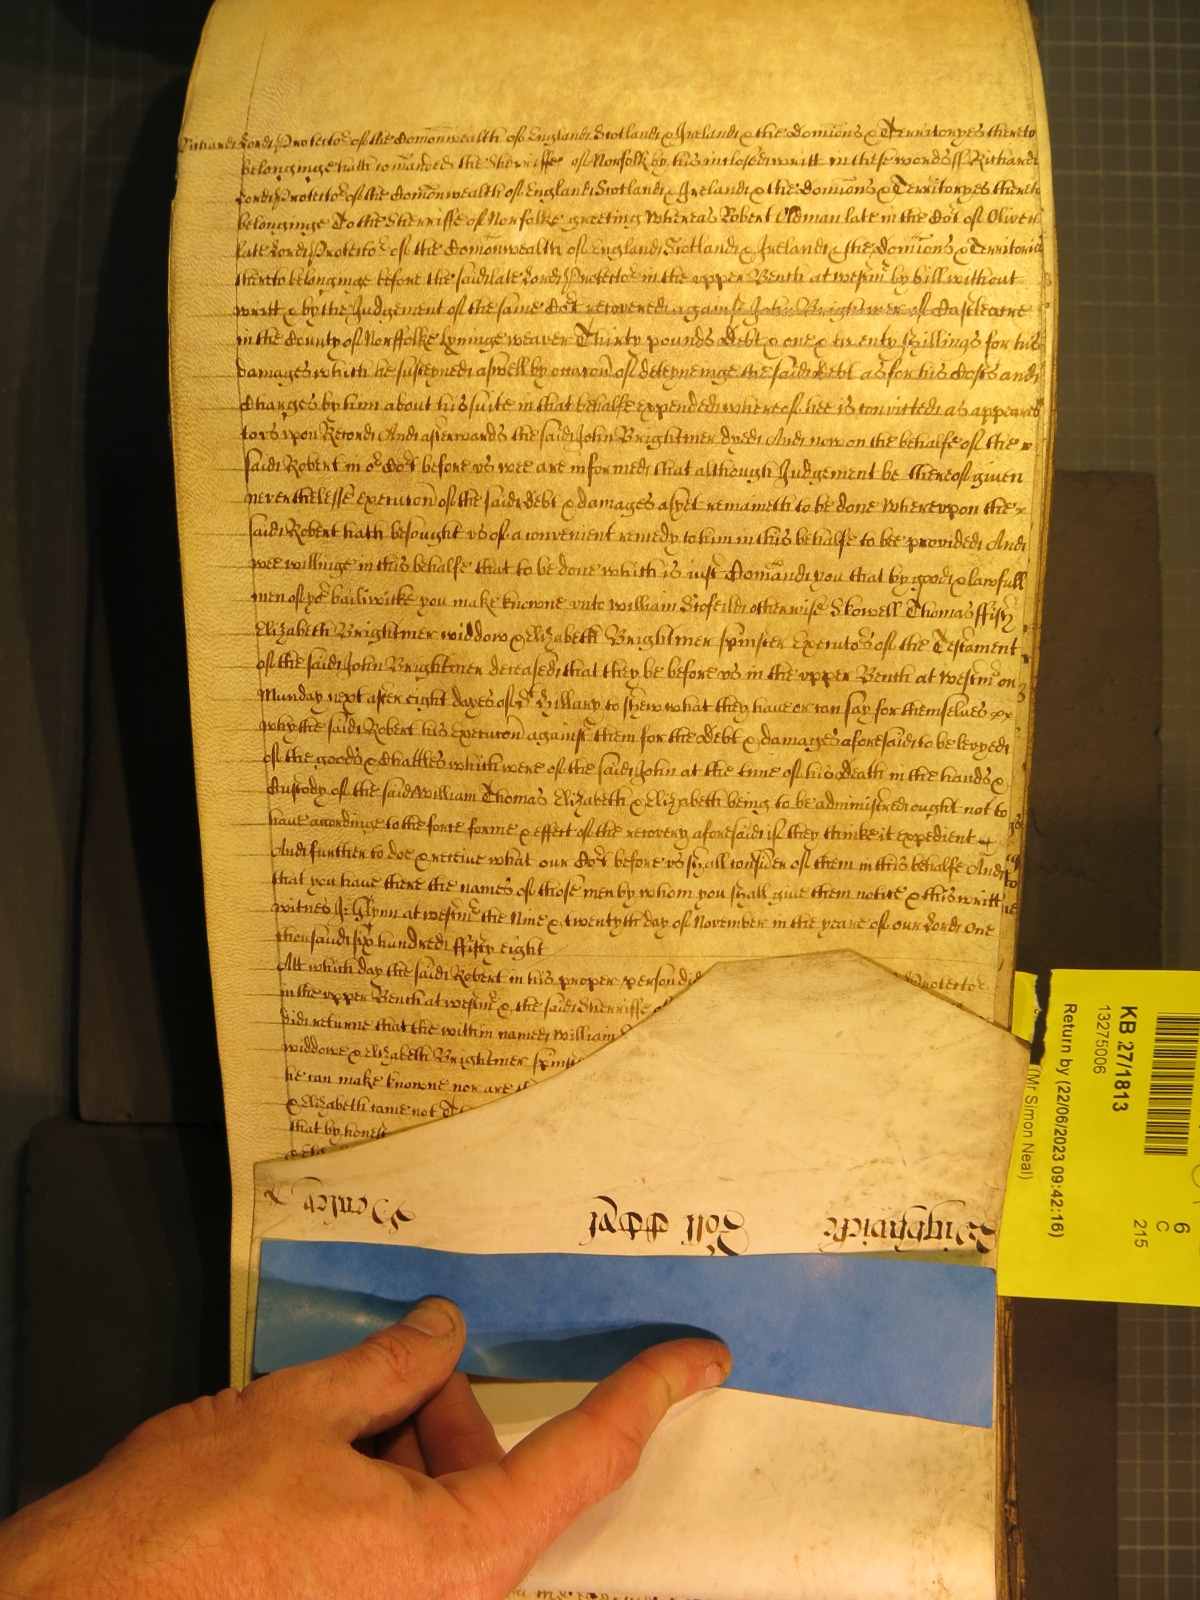 Richard Lord Protector of the Comonwealth of England Scotland & Ireland & the dominions & Territoryes thereto
belonginge hath comanded the Sherriffe of Norfolk by his inclosed writt in these words ss Richard
Lord Protector of the Comonwealth of England Scotland & Ireland & the dominions & Territoryes thereto
belonginge To the Sherriffe of Norfolke greeting Whereas Robert Oldman late in the Cort of Oliver
late Lord Protector of the Comonwealth of England Scotland & Ireland & the dominions & Territories
thereto belonginge before the said late Lord Protector in the upper Bench at Westmr by bill without
writt & by the Judgement of the same Cort recovered against John Brightmer of Castleacre
in the County of Norffolke Lyninge weaver Thirty pounds debt & one & twenty shillings for his
damages which he susteyned aswell by occacon of deteyneinge the said debt as for his Costes and
Charges by him about his suite in that behalfe expended whereof hee is convicted as appeares
to us upon Record And afterwards the said John Brightmer dyed And now on the behalfe of the
said Robert in or Cort before us wee are informed that although Judgement be thereof given
neverthelesse execucon of the said debt & damages as yet remaineth to be done Whereupon the
said Robert hath besought us of a convenient remedy to him in this behalfe to bee provided And
wee willinge in this behalfe that to be done which is just Comand you that by good & lawfull
men of yor bailiwicke you make knowne unto William Stofeild otherwise Skowell Thomas ffish
Elizabeth Brightmer widdow & Elizabeth Brightmer spinster Executors of the Testament
of the said John Brightmer deceased that they be before us in the upper Bench at Westmr on
Munday next after eight dayes of St Hillary to shew what they have or can say for themselves
why the said Robert his execucon against them for the debt & damages aforesaid to be levyed
of the goods & Chattles which were of the said John at the time of his death in the hands &
Custody of the said William Thomas Elizabeth & Elizabeth being to be administred ought not to
have accordinge to the force forme & effect of the recovery aforesaid if they thinke it expedient
And further to doe & receive what our Cort before us shall consider of them in this behalfe And
that you have there the names of those men by whom you shall give them notice & this writt
witnes J: Glynn at Westmr the Nine & twentyth day of November in the yeare of our Lord One
thousand six hundred ffifty eight
Att which day the said Robert in his proper person did Protector
in the upper Bench at Westmr & the said Sherriffe
did returne that the within named William
widdowe & Elizabeth Brightmer spins
he can make knowne nor are
& Elizabeth came not
that by honest
Henley
Brightwicke
KB 27/1813
13275006
Return by (22/06/2023 09:42:16)
(Mr Simon Neal)
6
C
215